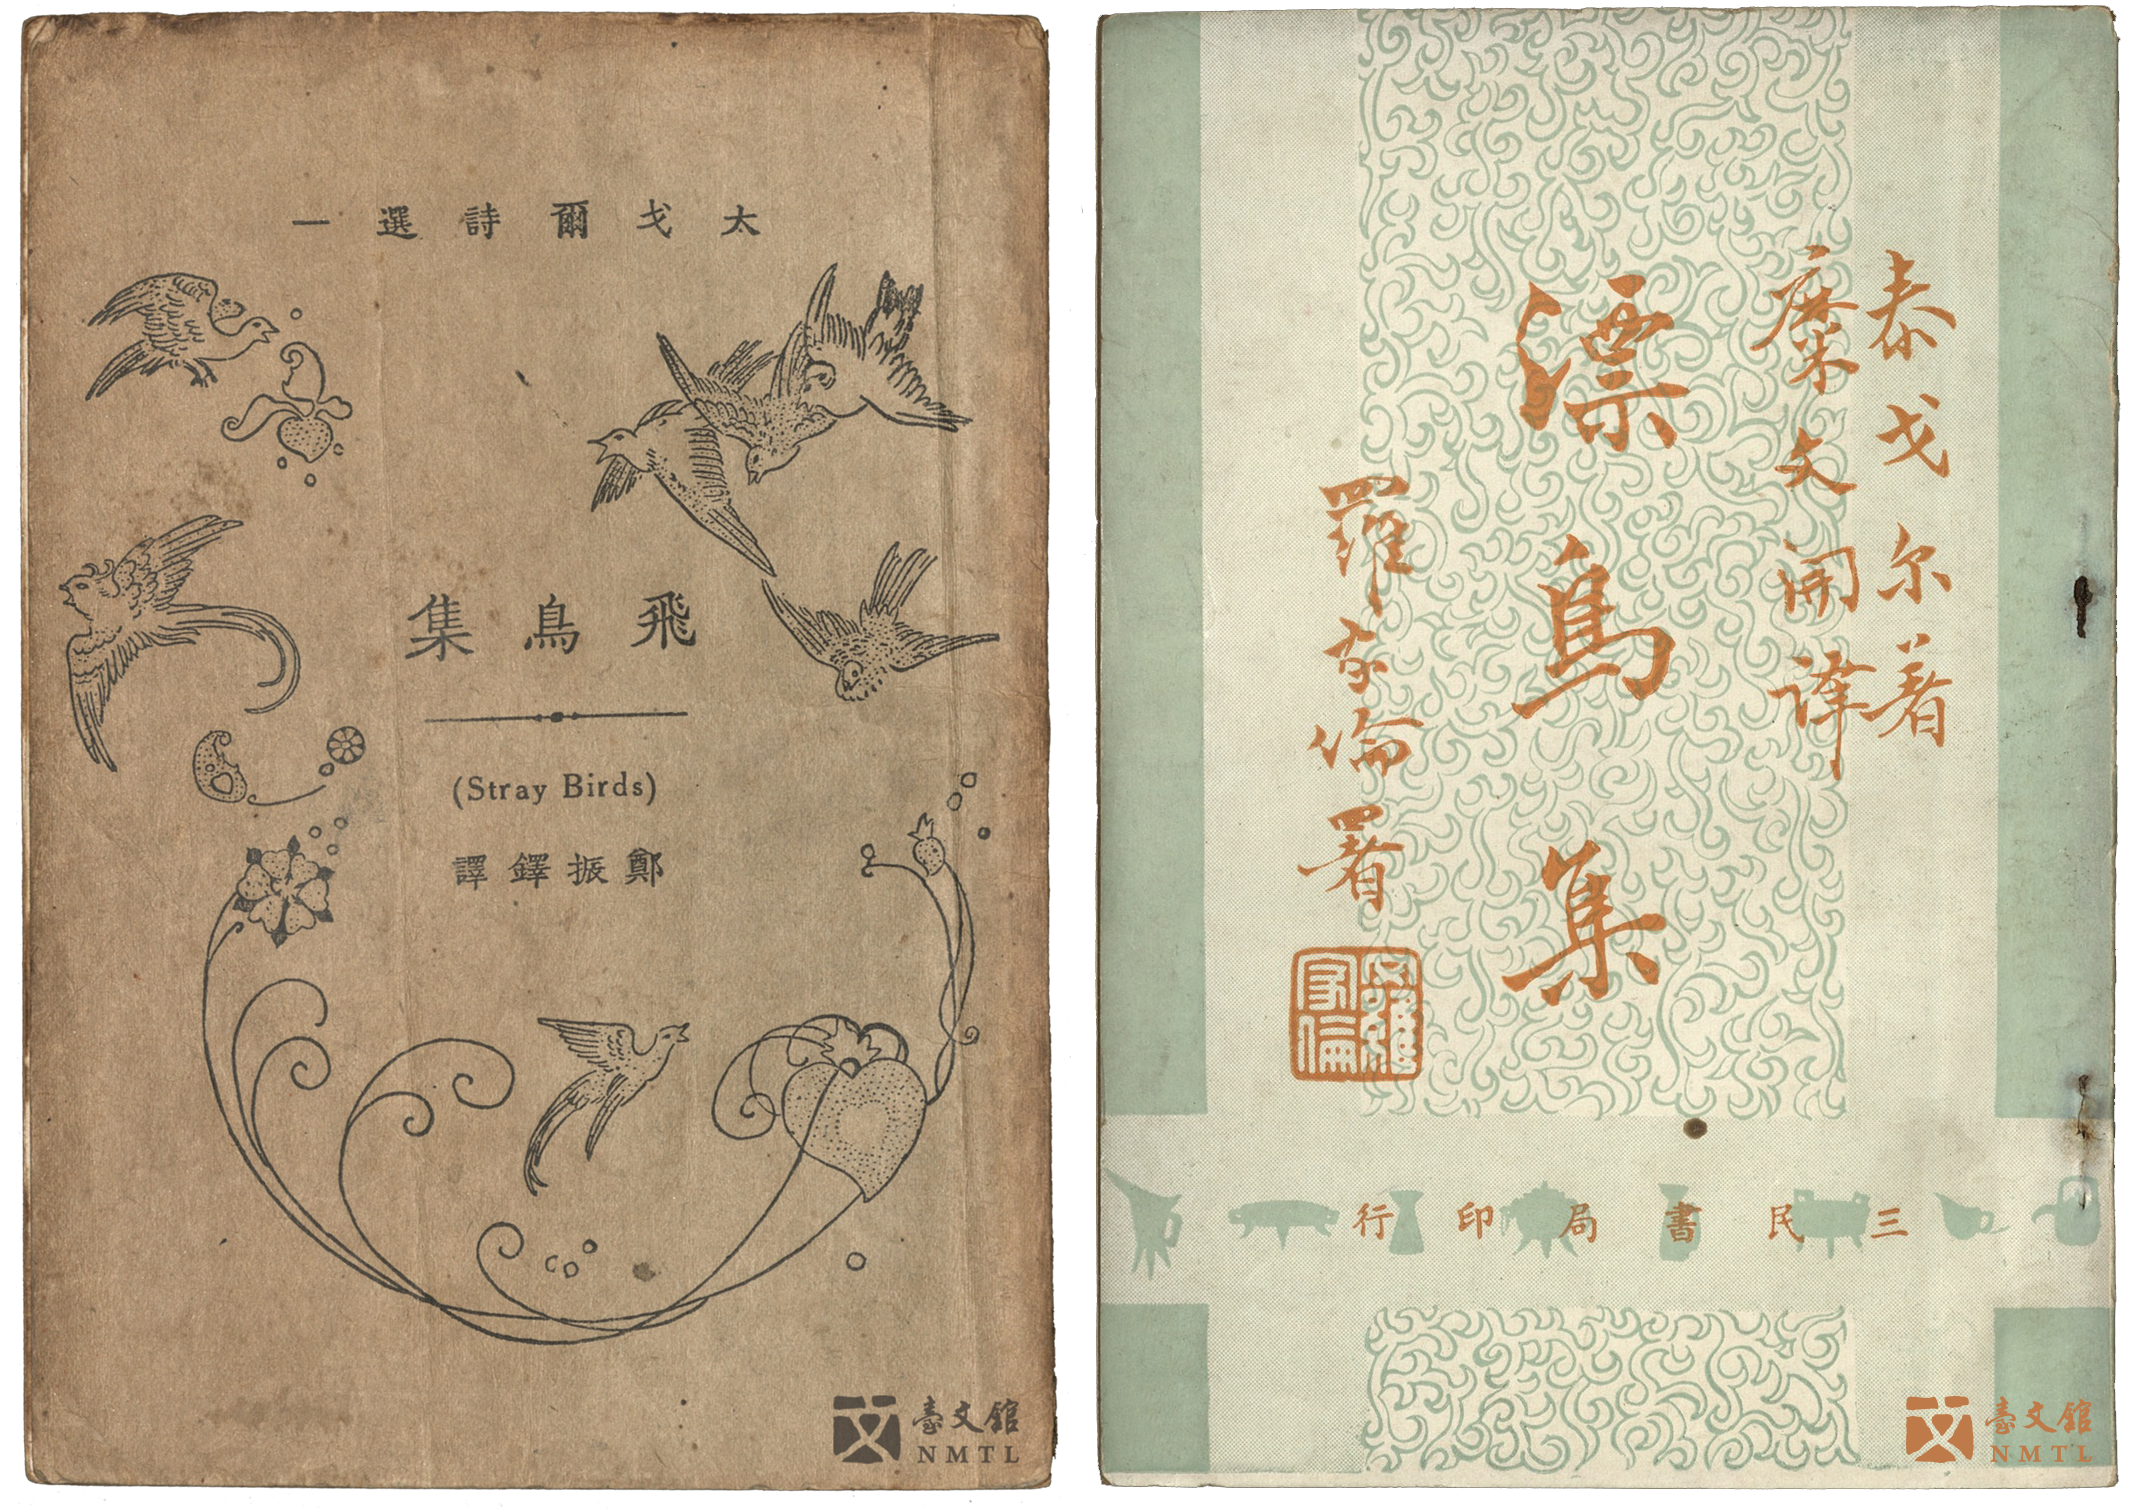 太戈爾詩選一
飛鳥集
(Stray Birds)
鄭振鐸譯
臺文館
NMTL
泰戈尔著
糜文開譯
漂鳥集
羅家倫署
三民書局印行
臺文館
NMTL